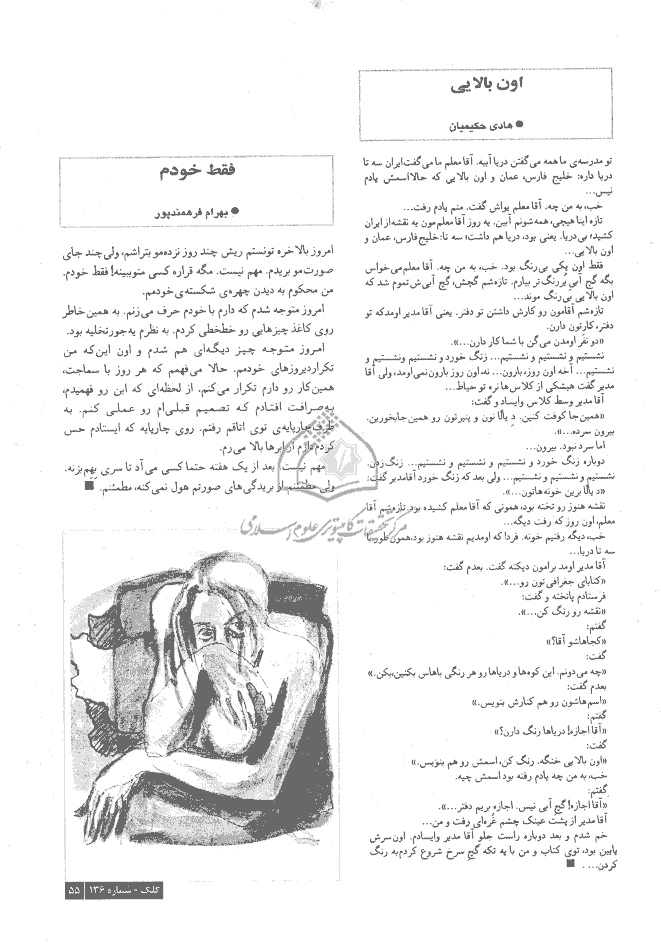 اون بالایی
● هادی حکیمیان
تو مدرسه‌ی ما همه می‌گفتن دریا آبیه. آقا معلم ما می‌گفت ایران سه تا
دریا داره: خلیج فارس، عمان و اون بالایی که حالا اسمش یادم
نیس...
خب، به من چه. آقا معلم یواش گفت. منم یادم رفت...
تازه اینا هیچی، همه‌شونم آبین. یه روز آقا معلم‌مون یه نقشه از ایران
کشید؛ بی‌دریا. یعنی بود، دریا هم داشت؛ سه تا: خلیج فارس، عمان و
اون بالایی...
فقط اون یکی بی‌رنگ بود. خب، به من چه. آقا معلم می‌خواس
بگه گچ آبی پُررنگ‌تر بیارم. تازه‌شم گچش، گچ آبی‌ش تموم شد که
اون بالایی بی‌رنگ موند...
تازه‌شم آقامون رو کارش داشتن تو دفتر. یعنی آقا مدیر اومد که تو
دفتر، کارتون دارن.
«دو نفر اومدن می‌گن با شما کار دارن...».
نشستیم و نشستیم و نشستیم... زنگ خورد و نشستیم ونشستیم و
نشستیم... آخه اون روز، بارون... نه، اون روز بارون نمی‌اومد، ولی آقا
مدیر گفت هیشکی از کلاس‌ها نره تو حیاط...
آقا مدیر وسط کلاس وایساد و گفت:
«همین‌جا کوفت کنین. دِ یالّا نون و پنیرتون رو همین‌جا بخورین.
بیرون سرده...».
اما سرد نبود. بیرون...
دوباره زنگ خورد و نشستیم و نشستیم و نشستیم... زنگ زدن.
نشستیم و نشستیم و نشستیم... ولی بعد که زنگ خورد آقا مدیر گفت:
«دِ یالّا برین خونه‌هاتون...».
نقشه هنوز رو تخته بود، همونی که آقا معلم کشیده بود. تازه‌شم آقا
معلم، اون روز که رفت دیگه...
خب، دیگه رفتیم خونه. فردا که اومدیم نقشه هنوز بود، همون‌طور، با
سه تا دریا...
آقا مدیر اومد برامون دیکته گفت. بعدم گفت:
«کتابای جغرافی‌تون رو...».
فرستادم پاتخته و گفت:
«نقشه رو رنگ کن...».
گفتم:
«کجاهاشو آقا؟»
گفت:
«چه می‌دونم. این کوه‌ها و دریاها رو هر رنگی باهاس بکنین، بکن.»
بعدم گفت:
«اسم‌هاشون رو هم کنارش بنویس.»
گفتم:
«آقا اجازه! دریاها رنگ دارن؟»
گفت:
«اون بالایی خنگه. رنگ کن، اسمش رو هم بنویس.»
خب، به من چه یادم رفته بود اسمش چیه.
گفتم:
«آقا اجازه! گچ آبی نیس. اجازه بریم دفتر...».
آقا مدیر از پشت عینک چشم غُره‌ای رفت و من...
خم شدم و بعد دوباره راست جلو آقا مدیر وایسادم. اون سرش
پایین بود، توی کتاب و من با یه تکه گچ سرخ شروع کردم به رنگ
کردن... . ■
فقط خودم
● بهرام فرهمندپور
امروز بالاخره تونستم ریش چند روز نزده‌مو بتراشم، ولی چند جای
صورت‌مو بریدم. مهم نیست. مگه قراره کسی منو ببینه! فقط خودم.
من محکوم به دیدن چهره‌ی شکسته‌ی خودمم.
امروز متوجه شدم که دارم با خودم حرف می‌زنم. به همین خاطر
روی کاغذ چیزهایی رو خط‌خطی کردم. به نظرم یه‌جور تخلیه بود.
امروز متوجه چیز دیگه‌ای هم شدم و اون این‌که من
تکرار دیروزهای خودمم. حالا می‌فهمم که هر روز با سماجت،
همین کار رو دارم تکرار می‌کنم. از لحظه‌ای که این رو فهمیدم،
به‌صرافت افتادم که تصمیم قبلی‌ام رو عملی کنم. به
طرف چارپایه‌ی توی اتاقم رفتم. روی چارپایه که ایستادم حس
کردم دارم از ابرها بالا می‌رم.
مهم نیست. بعد از یک هفته حتما کسی می‌آد تا سری بهم بزنه.
ولی مطمئنم از بریدگی‌های صورتم هول نمی‌کنه، مطمئنم. ■
مرکز تحقیقات کامپیوتری علوم اسلامی
کلک - شماره ۱۳۶ | ۵۵